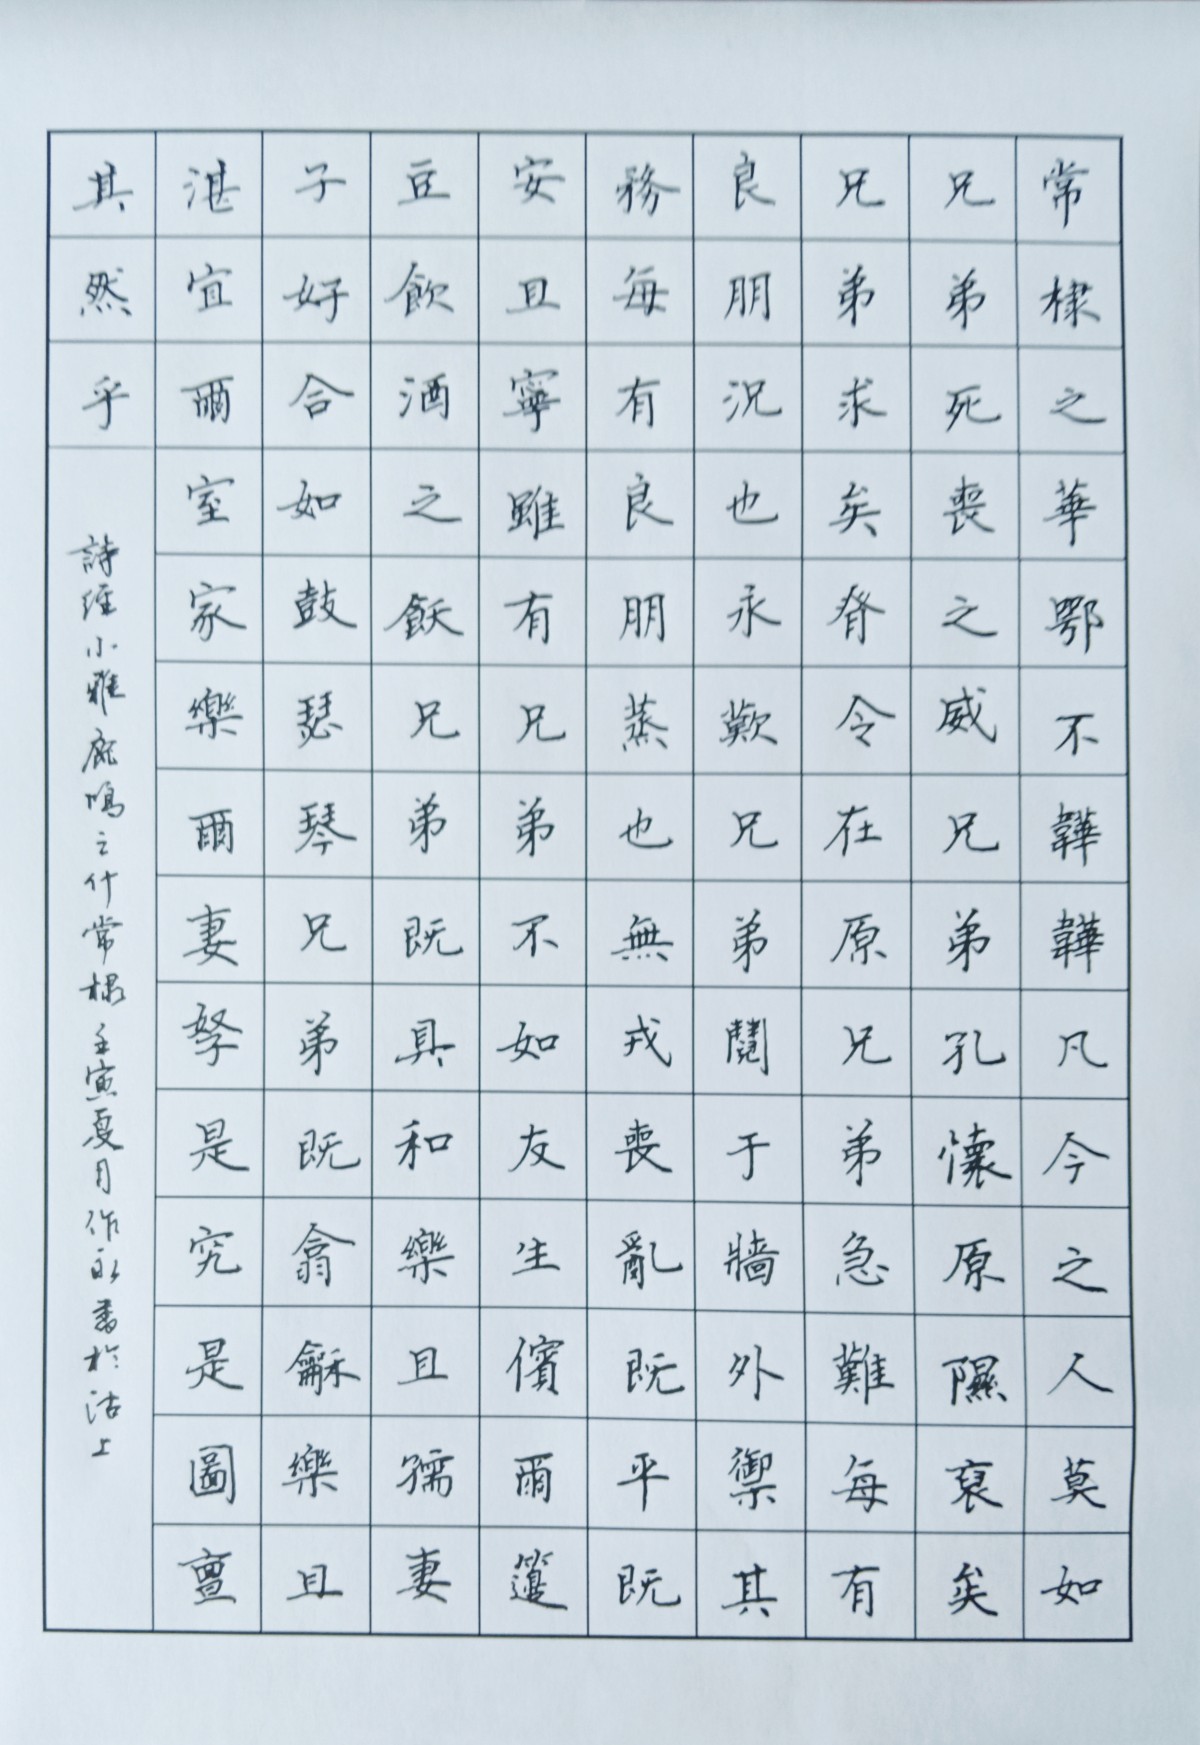 常棣之華鄂不韡韡凡今之人莫如
兄弟死喪之威兄弟孔懷原隰裒矣
兄弟求矣脊令在原兄弟急難每有
良朋況也永歎兄弟鬩于牆外禦其
務每有良朋蒸也無戎喪亂既平既
安且寧雖有兄弟不如友生儐爾籩
豆飲酒之飫兄弟既具和樂且孺妻
子好合如鼓瑟琴兄弟既翕龢樂且
湛宜爾室家樂爾妻孥是究是圖亶
其然乎
詩經小雅鹿鳴之什常棣壬寅夏月作永書於沽上